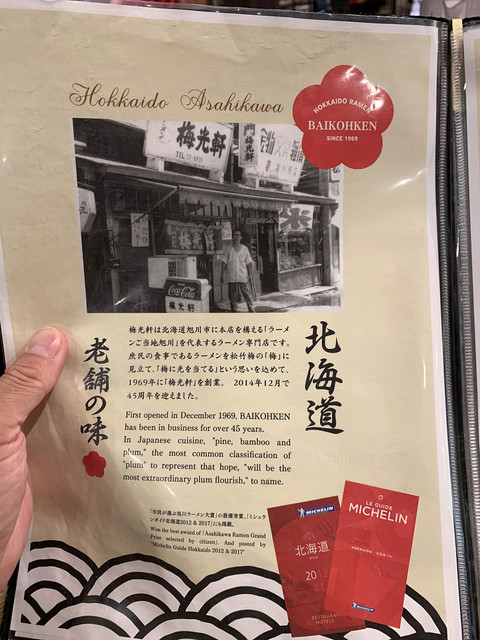 Hokkaido Asahikawa
HOKKAIDO RAMEN
BAIKOHKEN
SINCE 1969
梅光軒
梅光軒
Coca-Cola
梅光軒
北海道
老舗の味
梅光軒は北海道旭川市に本店を構える「ラーメ
ンご当地旭川」を代表するラーメン専門店です。
庶民の食事であるラーメンを松竹梅の「梅」に
見立て、「梅に光を当てる」という思いを込めて、
1969年に「梅光軒」を創業。 2014年12月で
45周年を迎えました。
First opened in December 1969, BAIKOHKEN
has been in business for over 45 years.
In Japanese cuisine, "pine, bamboo and
plum," the most common classification of
"plum" to represent that hope, "will be the
most extraordinary plum flourish," to name.
「市民が選ぶ旭川ラーメン大賞」の最優秀賞、「ミシュラ
ンガイド北海道2012 & 2017」にも掲載。
Won the best award of「Asahikawa Ramen Grand
Prize selected by citizen」. And posted by
"Michelin Guide Hokkaido 2012 & 2017"
MICHELIN
北海道
2012
RESTAURANTS
HOTELS
LE GUIDE
MICHELIN
MICHELIN